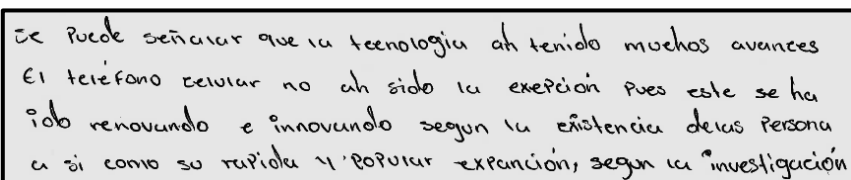 Se Puede señalar que la tecnologia ah tenido muchos avances
El teléfono celular no ah sido la exepción pues este se ha
ido renovando e innovando segun la existencia delas Persona
a si como su rapida y popular expanción, segun la investigación